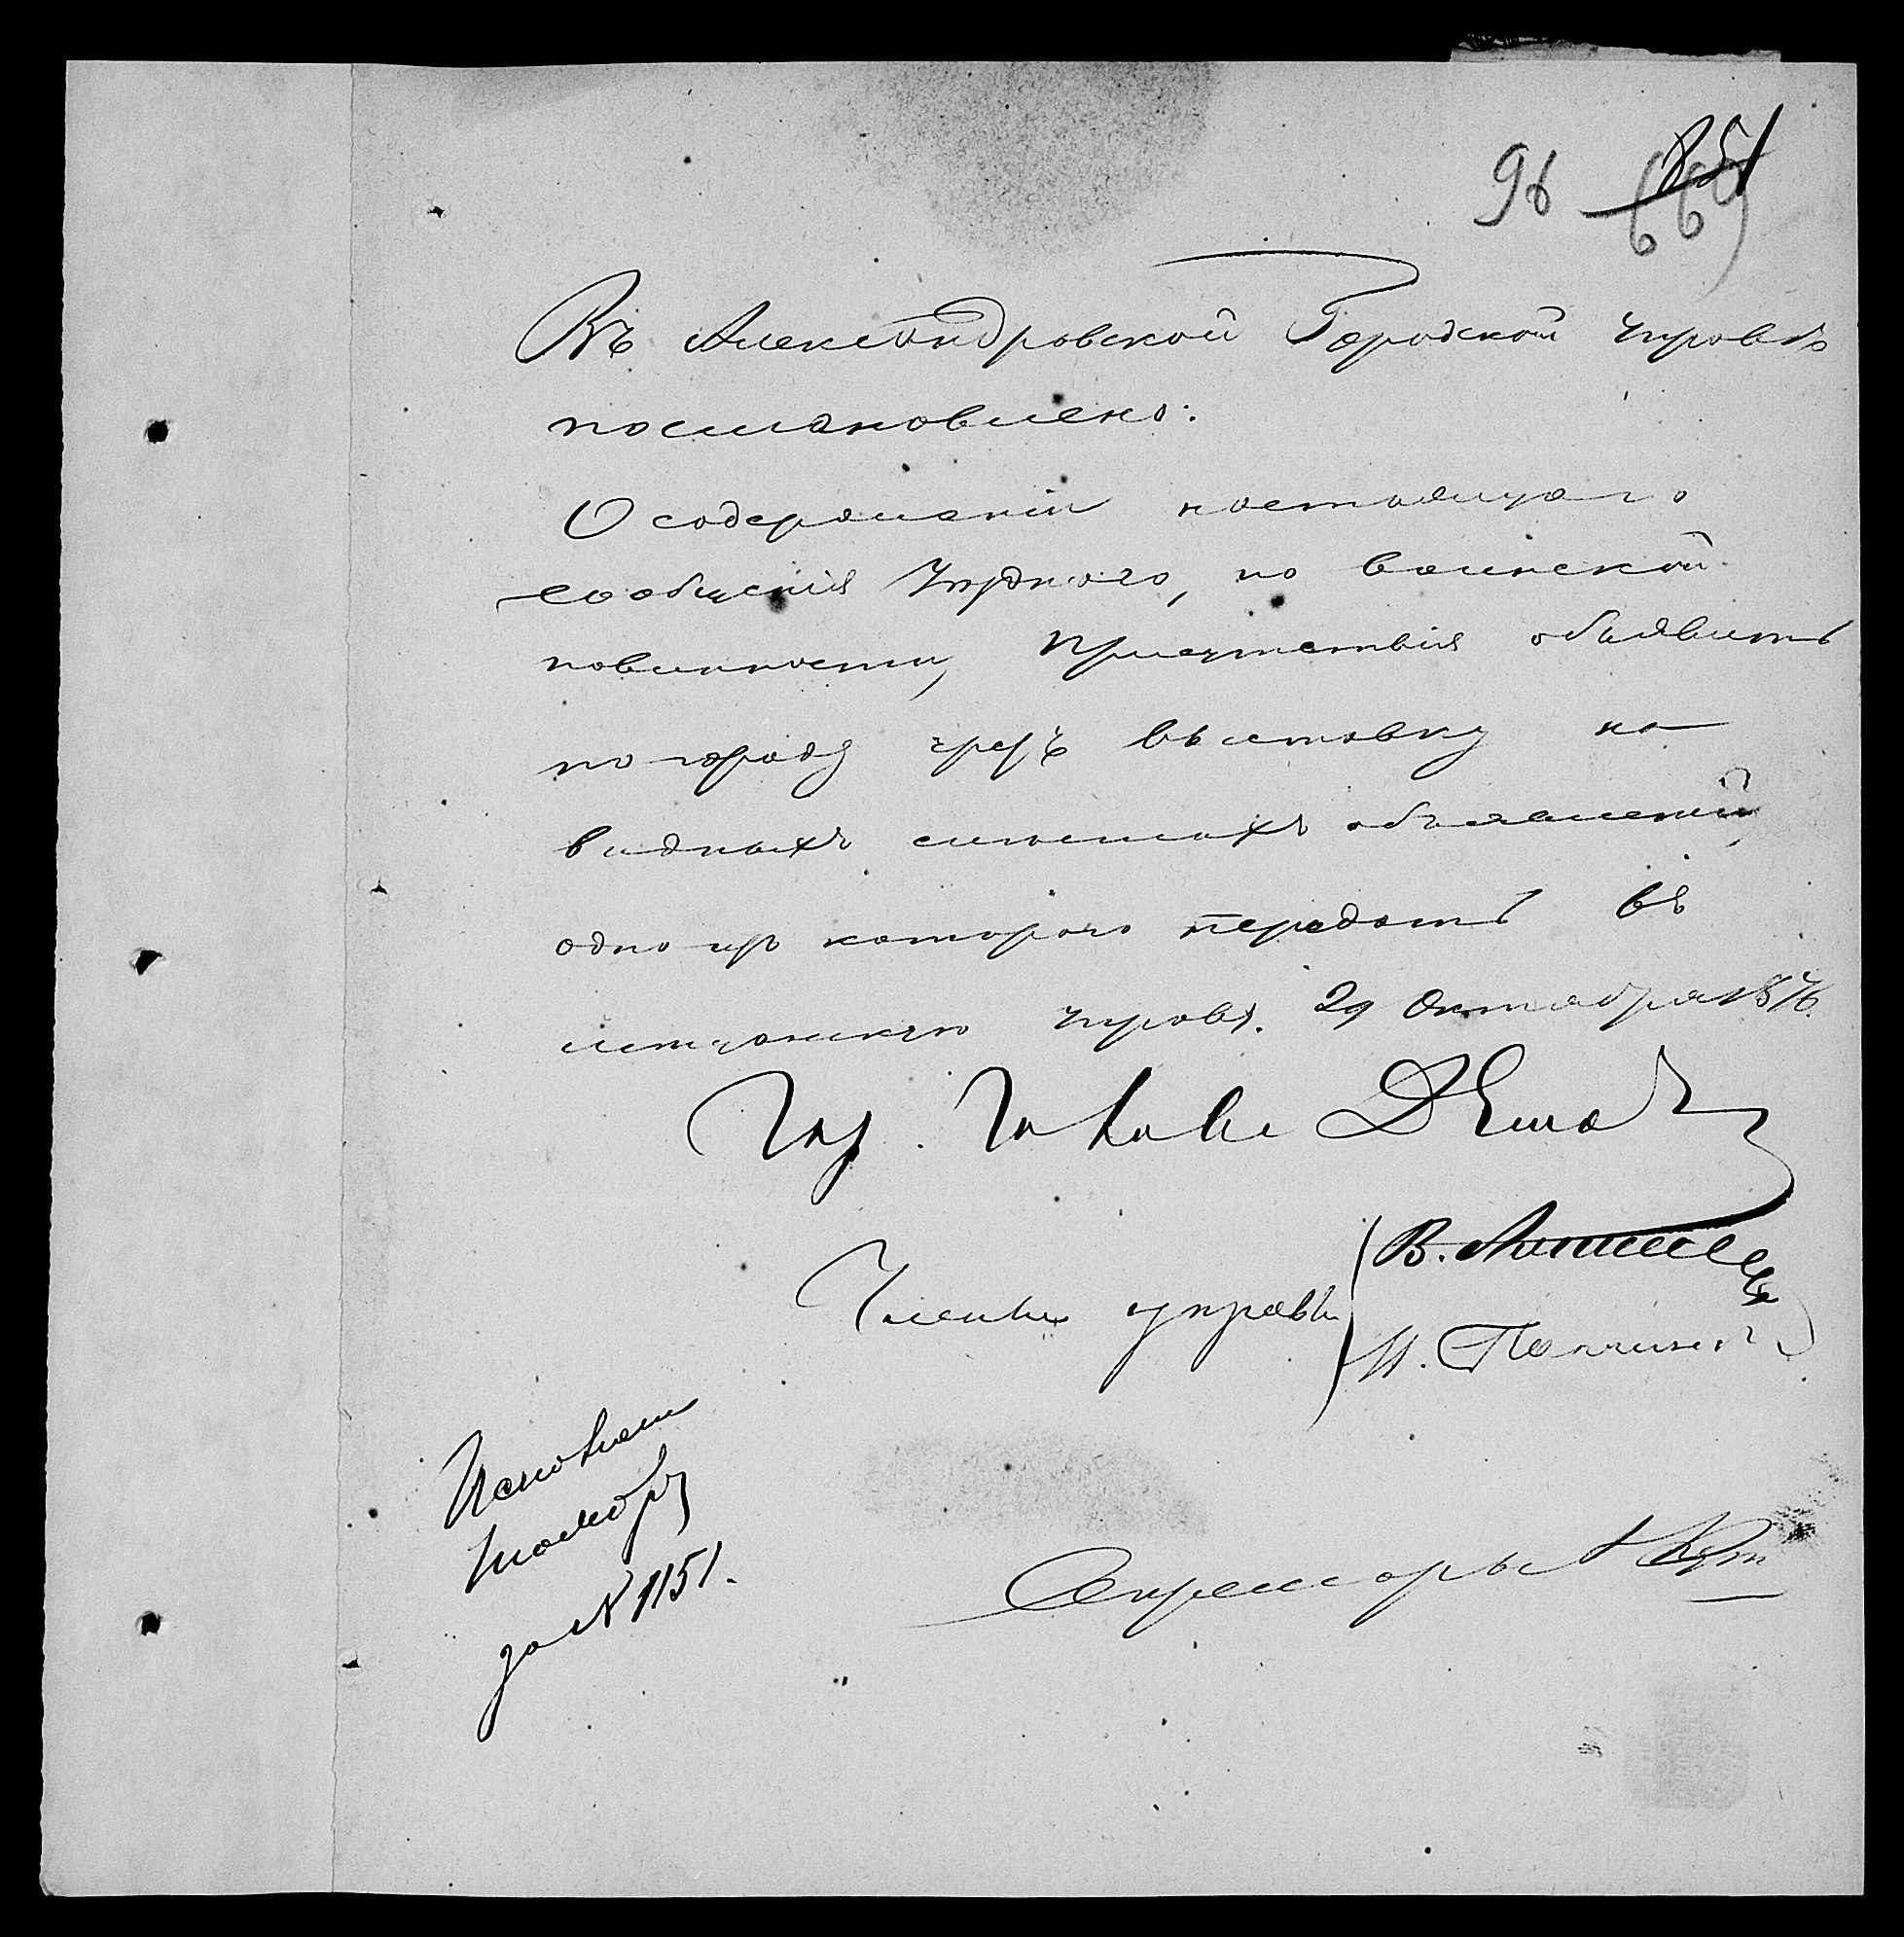 96 851
669
Въ Александровской Городской Управѣ
постановлено:
О содержаніи настоящаго
сообщенія Уѣзднаго, по воинской
повинности, Присутствія объявить
по городу чрезъ выставку на
видныхъ мѣстахъ объявленій,
одно изъ котораго передать въ
мѣщанскую Управу. 29 Октября 1876.
Гор. Голова
Члены управы
В.
И.
Исполнено
тогоже
за № 1151.
Секретарь